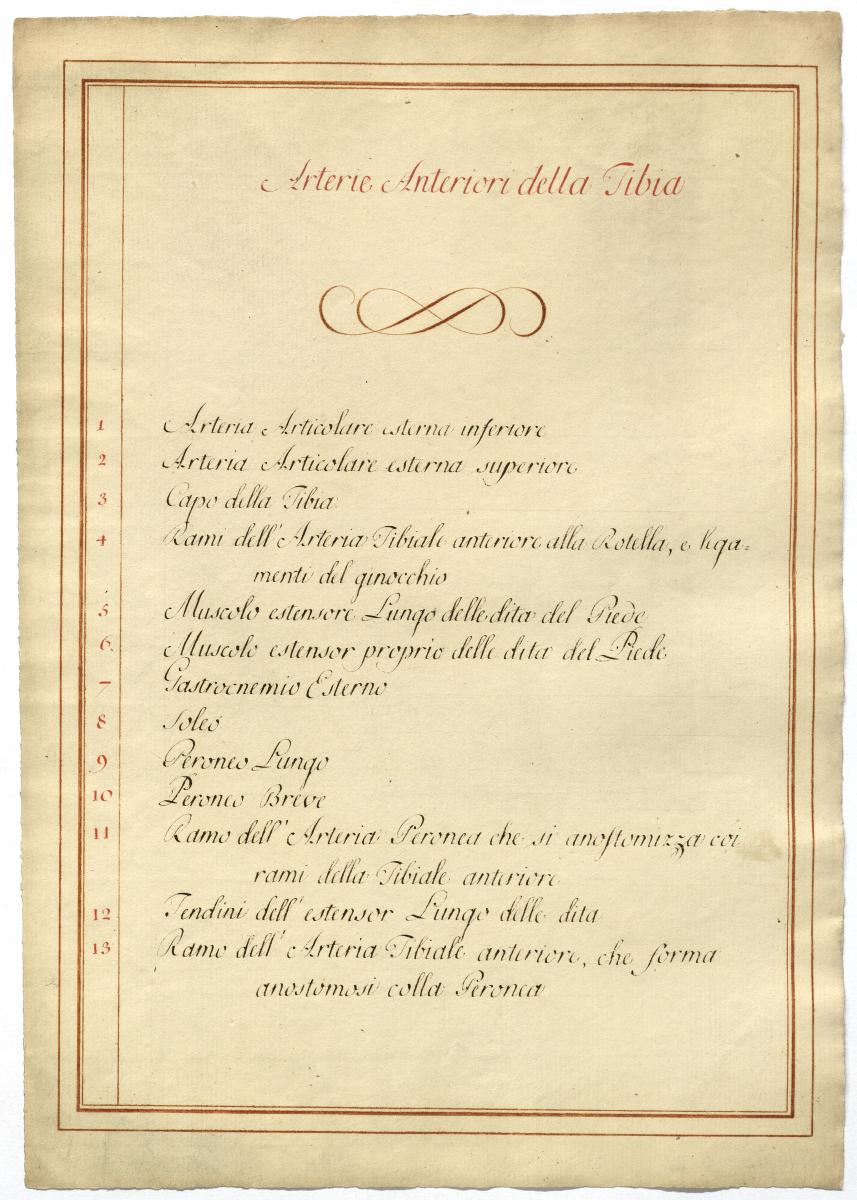 Arterie Anteriori della Tibia
1 Arteria Articolare esterna inferiore
2 Arteria Articolare esterna superiore
3 Capo della Tibia
4 Rami dell'Arteria Tibiale anteriore alla Rotella, e lega=
menti del ginocchio
5 Muscolo estensore Lungo delle dita del Piede
6 Muscolo estensor proprio delle dita del Piede
7 Gastrocnemio Esterno
8 Soleo
9 Peroneo Lungo
10 Peroneo Breve
11 Ramo dell'Arteria Peronea che si anostomizza coi
rami della Tibiale anteriore
12 Tendini dell'estensor Lungo delle dita
13 Ramo dell'Arteria Tibiale anteriore, che forma
anostomosi colla Peronea